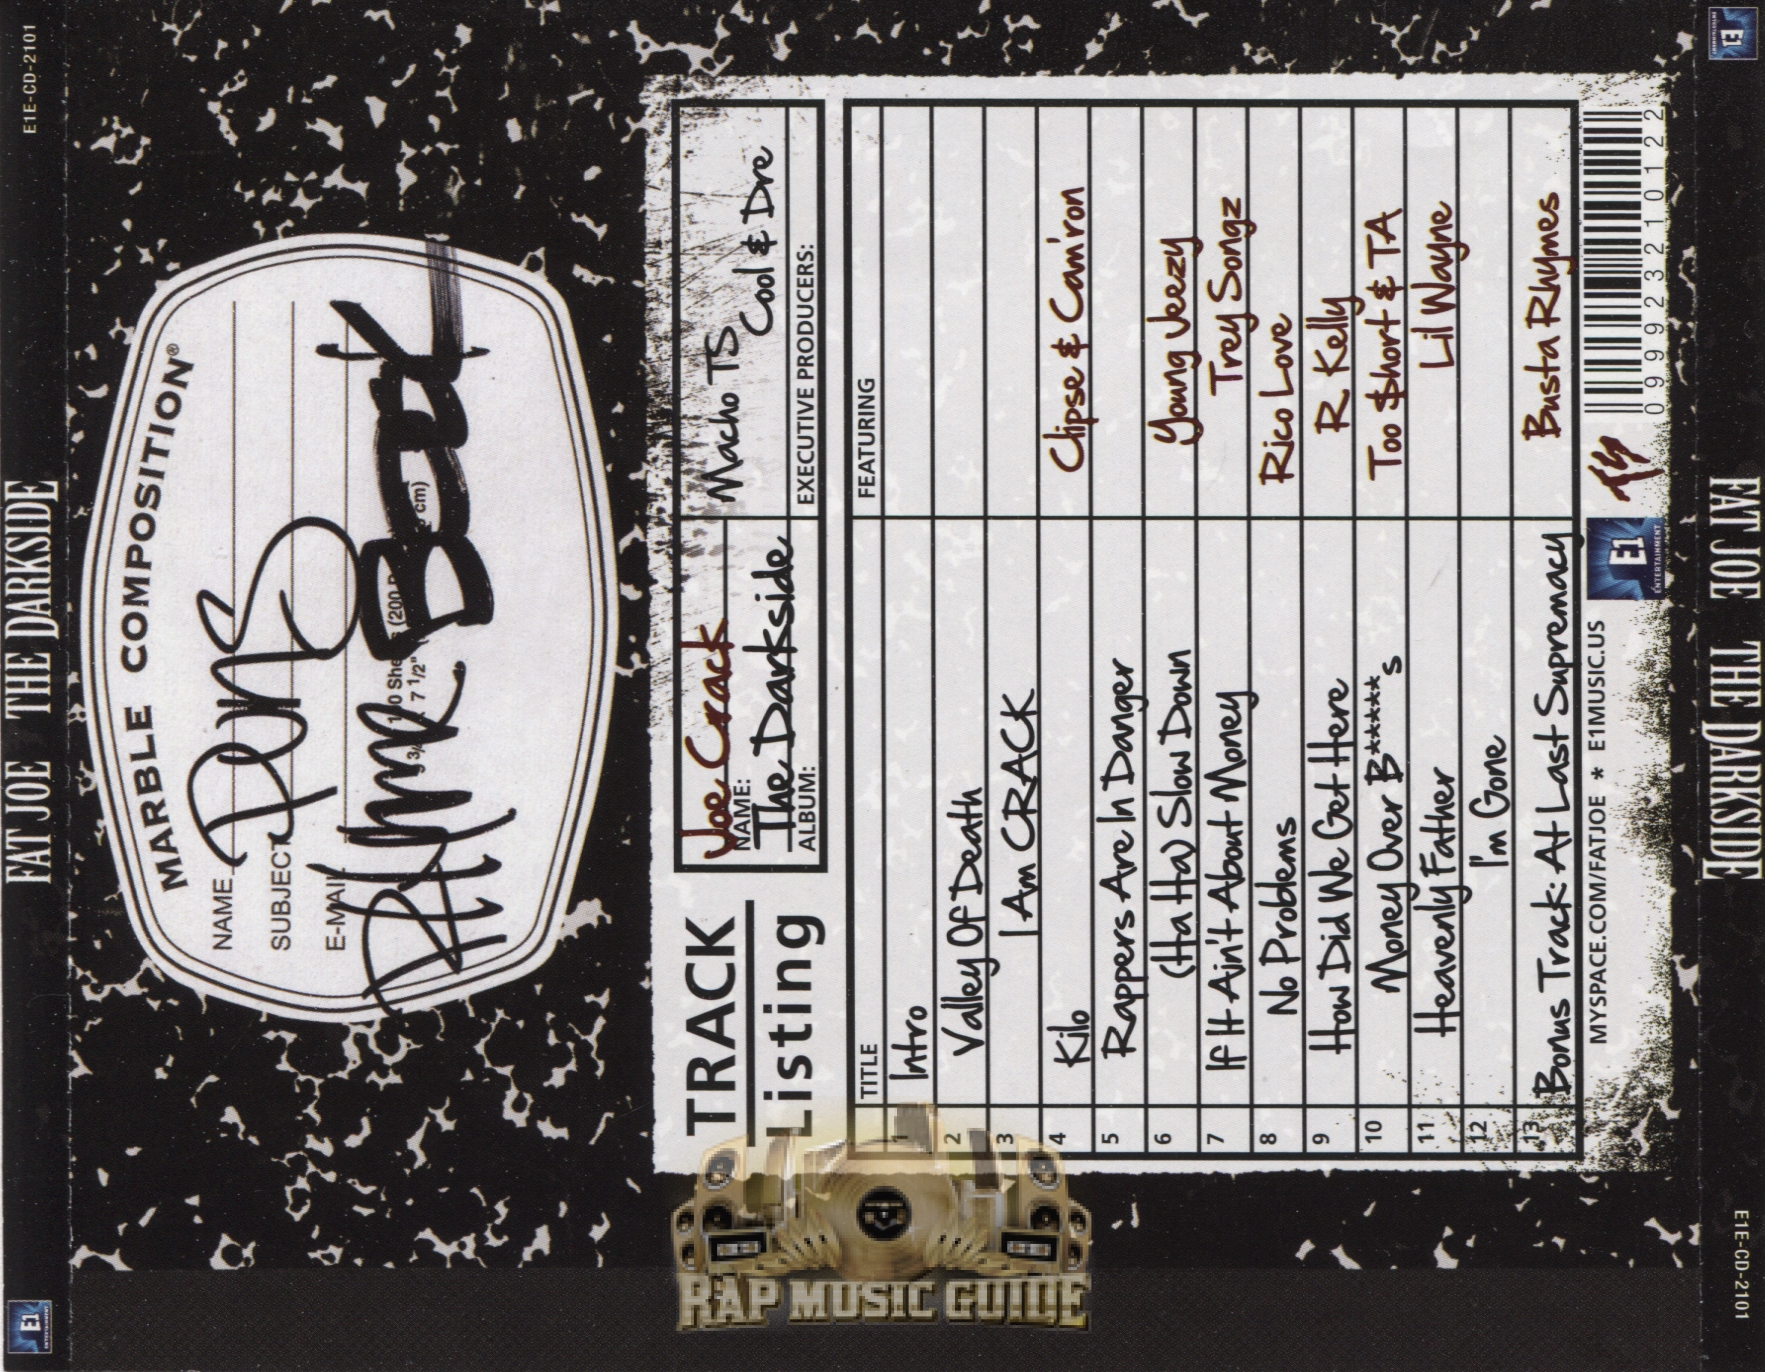 FAT JOE THE DARKSIDE
E1E-CD-2101
E1
ENTERTAINMENT
MARBLE COMPOSITION®
NAME
SUBJECT
E-MAIL
Rhyme Book
cm)
7 1/2"
TRACK
Listing
Joe Crack
NAME:
The Darkside
ALBUM:
Macho TS
Cool & Dre
EXECUTIVE PRODUCERS:
TITLE FEATURING
1 Intro
2 Valley Of Death
3 I Am CRACK
4 Kilo Clipse & Cam'ron
5 Rappers Are In Danger
6 (Ha Ha) Slow Down Young Jeezy
7 If It Ain't About Money Trey Songz
8 No Problems Rico Love
9 How Did We Get Here R Kelly
10 Money Over B*****s Too $hort & TA
11 Heavenly Father Lil Wayne
12 I'm Gone
13 Bonus Track: At Last Supremacy Busta Rhymes
MYSPACE.COM/FATJOE * E1MUSIC.US
E1
ENTERTAINMENT
099923210122
FAT JOE THE DARKSIDE
E1E-CD-2101
E1
ENTERTAINMENT
RAP MUSIC GUIDE